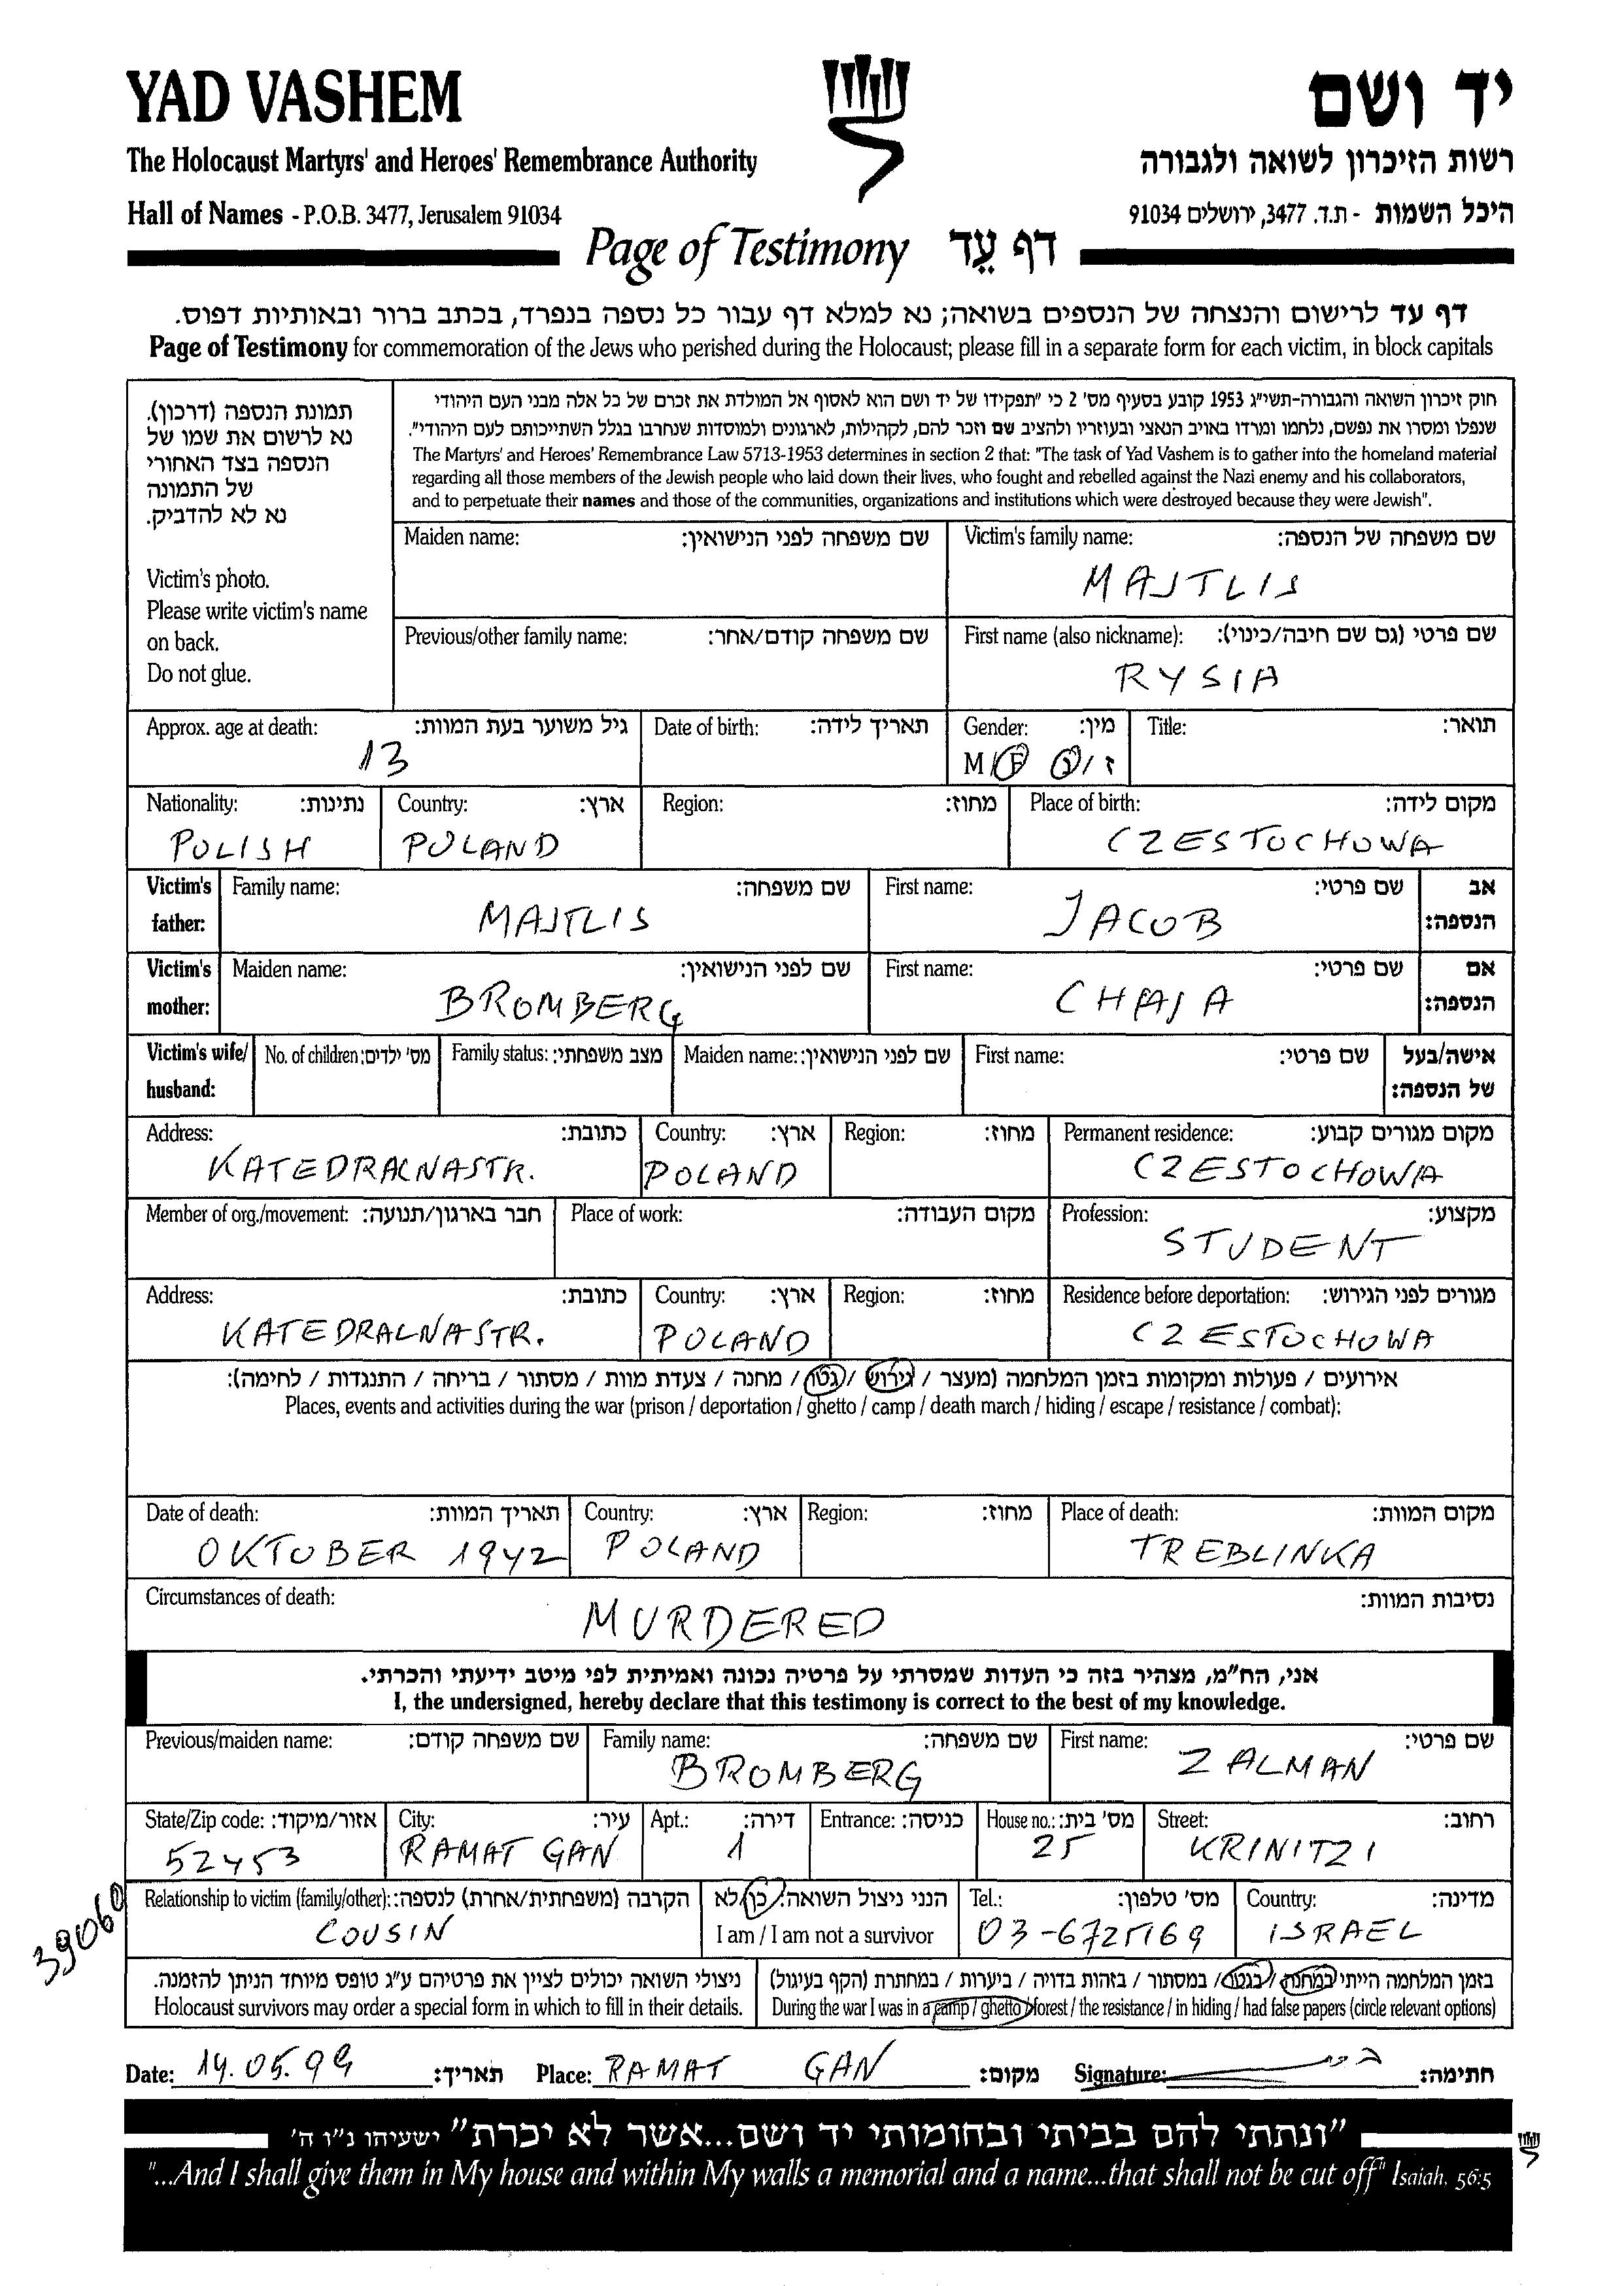 YAD VASHEM
יד ושם
The Holocaust Martyrs' and Heroes' Remembrance Authority
רשות הזיכרון לשואה ולגבורה
Hall of Names - P.O.B. 3477, Jerusalem 91034
היכל השמות - ת.ד. 3477, ירושלים 91034
Page of Testimony דף עֵד
דף עד לרישום והנצחה של הנספים בשואה; נא למלא דף עבור כל נספה בנפרד, בכתב ברור ובאותיות דפוס.
Page of Testimony for commemoration of the Jews who perished during the Holocaust; please fill in a separate form for each victim, in block capitals
תמונת הנספה (דרכון).
נא לרשום את שמו של
הנספה בצד האחורי
של התמונה
נא לא להדביק.
Victim's photo.
Please write victim's name
on back.
Do not glue.
חוק זיכרון השואה והגבורה-תשי"ג 1953 קובע בסעיף מס' 2 כי "תפקידו של יד ושם הוא לאסוף אל המולדת את זכרם של כל אלה מבני העם היהודי
שנפלו ומסרו את נפשם, נלחמו ומרדו באויב הנאצי ובעוזריו ולהציב שם וזכר להם, לקהילות, לארגונים ולמוסדות שנחרבו בגלל השתייכותם לעם היהודי".
The Martyrs' and Heroes' Remembrance Law 5713-1953 determines in section 2 that: "The task of Yad Vashem is to gather into the homeland material
regarding all those members of the Jewish people who laid down their lives, who fought and rebelled against the Nazi enemy and his collaborators,
and to perpetuate their names and those of the communities, organizations and institutions which were destroyed because they were Jewish".
Maiden name: שם משפחה לפני הנישואין:
Victim's family name: שם משפחה של הנספה:
MAJTLIS
Previous/other family name: שם משפחה קודם/אחר:
First name (also nickname): שם פרטי (גם שם חיבה/כינוי):
RYSIA
Approx. age at death: גיל משוער בעת המוות:
13
Date of birth: תאריך לידה:
Gender: מין:
M/F נ/ז
Title: תואר:
Nationality: נתינות:
POLISH
Country: ארץ:
POLAND
Region: מחוז:
Place of birth: מקום לידה:
CZESTOCHOWA
Victim's father:
Family name: שם משפחה:
MAJTLIS
First name: שם פרטי:
JACOB
אב הנספה:
Victim's mother:
Maiden name: שם לפני הנישואין:
BROMBERG
First name: שם פרטי:
CHAJA
אם הנספה:
Victim's wife/ husband:
No. of children: מס' ילדים:
Family status: מצב משפחתי:
Maiden name: שם לפני הנישואין:
First name: שם פרטי:
אישה/בעל של הנספה:
Address: כתובת:
KATEDRALNASTR.
Country: ארץ:
POLAND
Region: מחוז:
Permanent residence: מקום מגורים קבוע:
CZESTOCHOWA
Member of org./movement: חבר בארגון/תנועה:
Place of work: מקום העבודה:
Profession: מקצוע:
STUDENT
Address: כתובת:
KATEDRALNASTR.
Country: ארץ:
POLAND
Region: מחוז:
Residence before deportation: מגורים לפני הגירוש:
CZESTOCHOWA
אירועים / פעולות ומקומות בזמן המלחמה (מעצר / גירוש / גטו / מחנה / צעדת מוות / מסתור / בריחה / התנגדות / לחימה):
Places, events and activities during the war (prison / deportation / ghetto / camp / death march / hiding / escape / resistance / combat):
Date of death: תאריך המוות:
OKTOBER 1942
Country: ארץ:
POLAND
Region: מחוז:
Place of death: מקום המוות:
TREBLINKA
Circumstances of death: נסיבות המוות:
MURDERED
אני, הח"מ, מצהיר בזה כי העדות שמסרתי על פרטיה נכונה ואמיתית לפי מיטב ידיעתי והכרתי.
I, the undersigned, hereby declare that this testimony is correct to the best of my knowledge.
Previous/maiden name: שם משפחה קודם:
Family name: שם משפחה:
BROMBERG
First name: שם פרטי:
ZALMAN
State/Zip code: אזור/מיקוד:
52453
City: עיר:
RAMAT GAN
Apt.: דירה:
1
Entrance: כניסה:
House no.: מס' בית:
25
Street: רחוב:
KRINITZI
39060
Relationship to victim (family/other): הקרבה (משפחתית/אחרת) לנספה:
COUSIN
הנני ניצול השואה: כן/לא
I am / I am not a survivor
Tel.: מס' טלפון:
03-6725169
Country: מדינה:
ISRAEL
ניצולי השואה יכולים לציין את פרטיהם ע"ג טופס מיוחד הניתן להזמנה.
Holocaust survivors may order a special form in which to fill in their details.
בזמן המלחמה הייתי במחנה / בגטו / במסתור / בזהות בדויה / ביערות / במחתרת (הקף בעיגול)
During the war I was in a camp / ghetto / forest / the resistance / in hiding / had false papers (circle relevant options)
Date: 14.05.99 תאריך: Place: RAMAT GAN מקום: Signature: חתימה:
"ונתתי להם בביתי ובחומותי יד ושם...אשר לא יכרת" ישעיהו נ"ו ה'
"...And I shall give them in My house and within My walls a memorial and a name...that shall not be cut off" Isaiah, 56:5